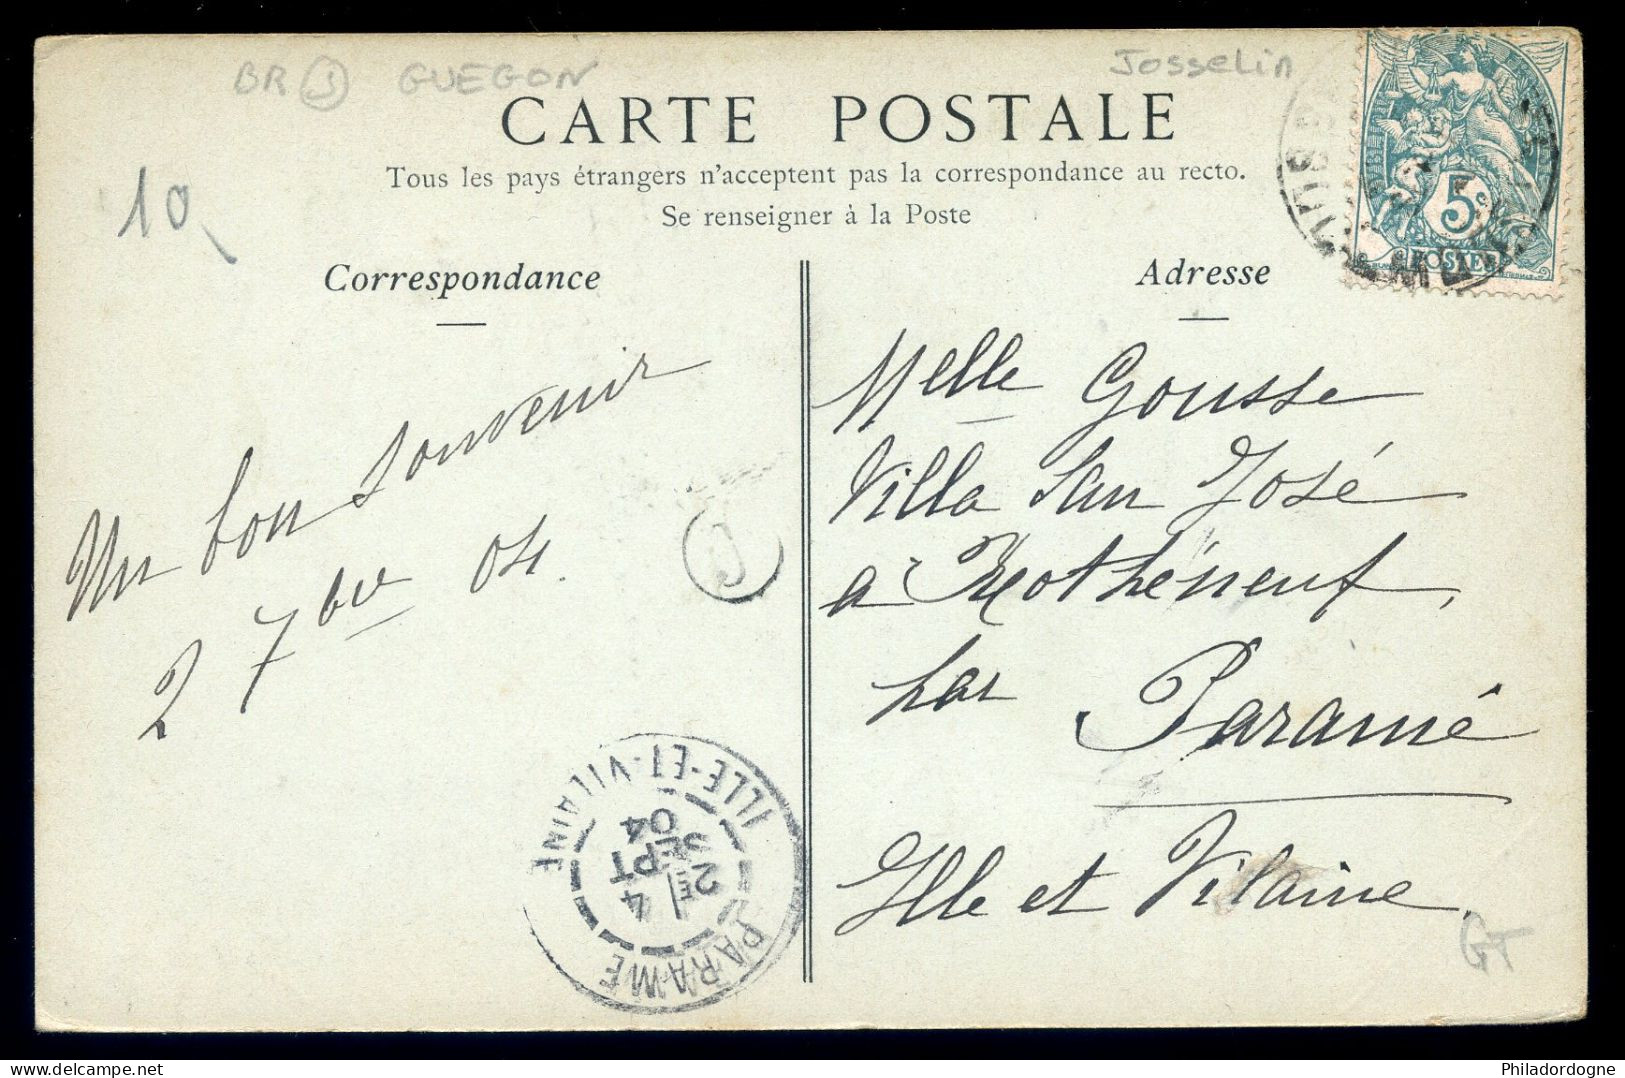 BR J GUEGON
Josselin
CARTE POSTALE
Tous les pays étrangers n'acceptent pas la correspondance au recto.
Se renseigner à la Poste
10
Correspondance
Adresse
5c
POSTES
Un bon souvenir
2 7bre 04.
Melle Gousse
Villa San José
a Rothéneuf,
par Paramé
Ille et Vilaine.
PARAMÉ
2E / 4
SEPT
04
ILLE-ET-VILAINE
GT
Philadordogne